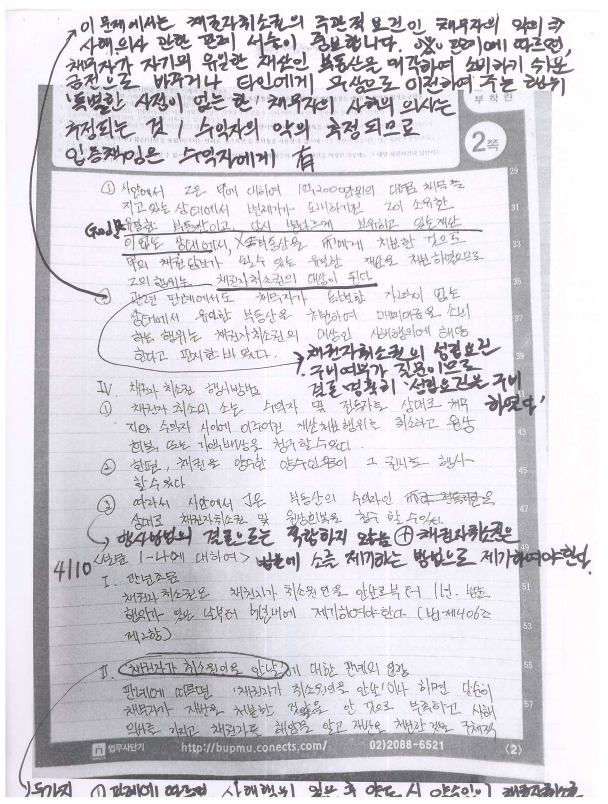 이 문제에서는 채권자취소권의 주관적 요건인 채무자의 악의 즉
사해의사 관한 판례 서술이 중요합니다. 판례에 따르면,
채무자가 자기의 유일한 재산인 부동산을 매각하여 소비하기 쉬운
금전으로 바꾸거나 타인에게 무상으로 이전하여 주는 행위
특별한 사정이 없는 한 채무자의 사해의 의사는
추정되는 것 / 수익자의 악의 추정되므로
입증책임은 수익자에게 有
부하란
2쪽
29
① 사안에서 乙은 甲에 대하여 1억 2000만원의 채무를
지고 있는 상태에서
31
유일한 부동산이고, 보유하고 있는 재산
Good
33
이 없는 상태에서, X부동산을 丙에게 처분한 것으로
甲의 채권담보가 될 수 있는 유일한 재산을 처분하였으므로
乙의 행위는 채권자취소권의 대상이 된다
35
② 관련 판례에서도 채무자가 없는
상태에서 유일한 부동산을 처분하여 매매대금을 소비
37
하는 행위는 채권자취소권의 대상인 사해행위에 해당
한다고 판시한 바 있다.
39
채권자취소권의 성립요건
구비여부가 질문이므로
결론 명확히 '성립요건을 구비
하였다'
IV. 채권자 취소권 행사방법
① 채권자 취소의 소는 수익자 및 전득자를 상대로 채무
자와 수익자 사이에 이루어진 재산처분행위를 취소하고 원상
43
회복 또는 가액배상을 청구할 수 있다.
② 한편, 채권을 양수한 양수인 丁이 그 권리를 행사
45
할 수 있다
③ 따라서 사안에서 丁은 부동산의 수익자인 丙
47
상대로 채권자취소권 및 원상회복을 청구 할 수 있다.
행사방법의 결론으로는 적합하지 않음 ⊕ 채권자취소권은
49
4/10
<설문 1-나에 대하여>
법원에 소를 제기하는 방법으로 제기하여야한다.
I. 관련조문
채권자 취소권은 채권자가 취소원인을 안 날로부터 1년, 법률
51
행위가 있은 날부터 5년내에 제기하여야 한다 (법 제406조
53
제2항)
II. 채권자가 취소원인을 안 날에 대한 판례의 입장
55
판례에 따르면 '채권자가 취소원인을 안 날'이라 하면 단순히
57
채무자가 재산을 처분한 것을 안 것으로 부족하고 사해
의사를 가지고 채권자를 해함을 알고 재산을 처분한 것을 구체적
법무사단기
http://bupmu.conects.com/
02)2088-6521
〈2〉
① 판례에 따르면, 사해행위 이후 양수인이 채권자취소